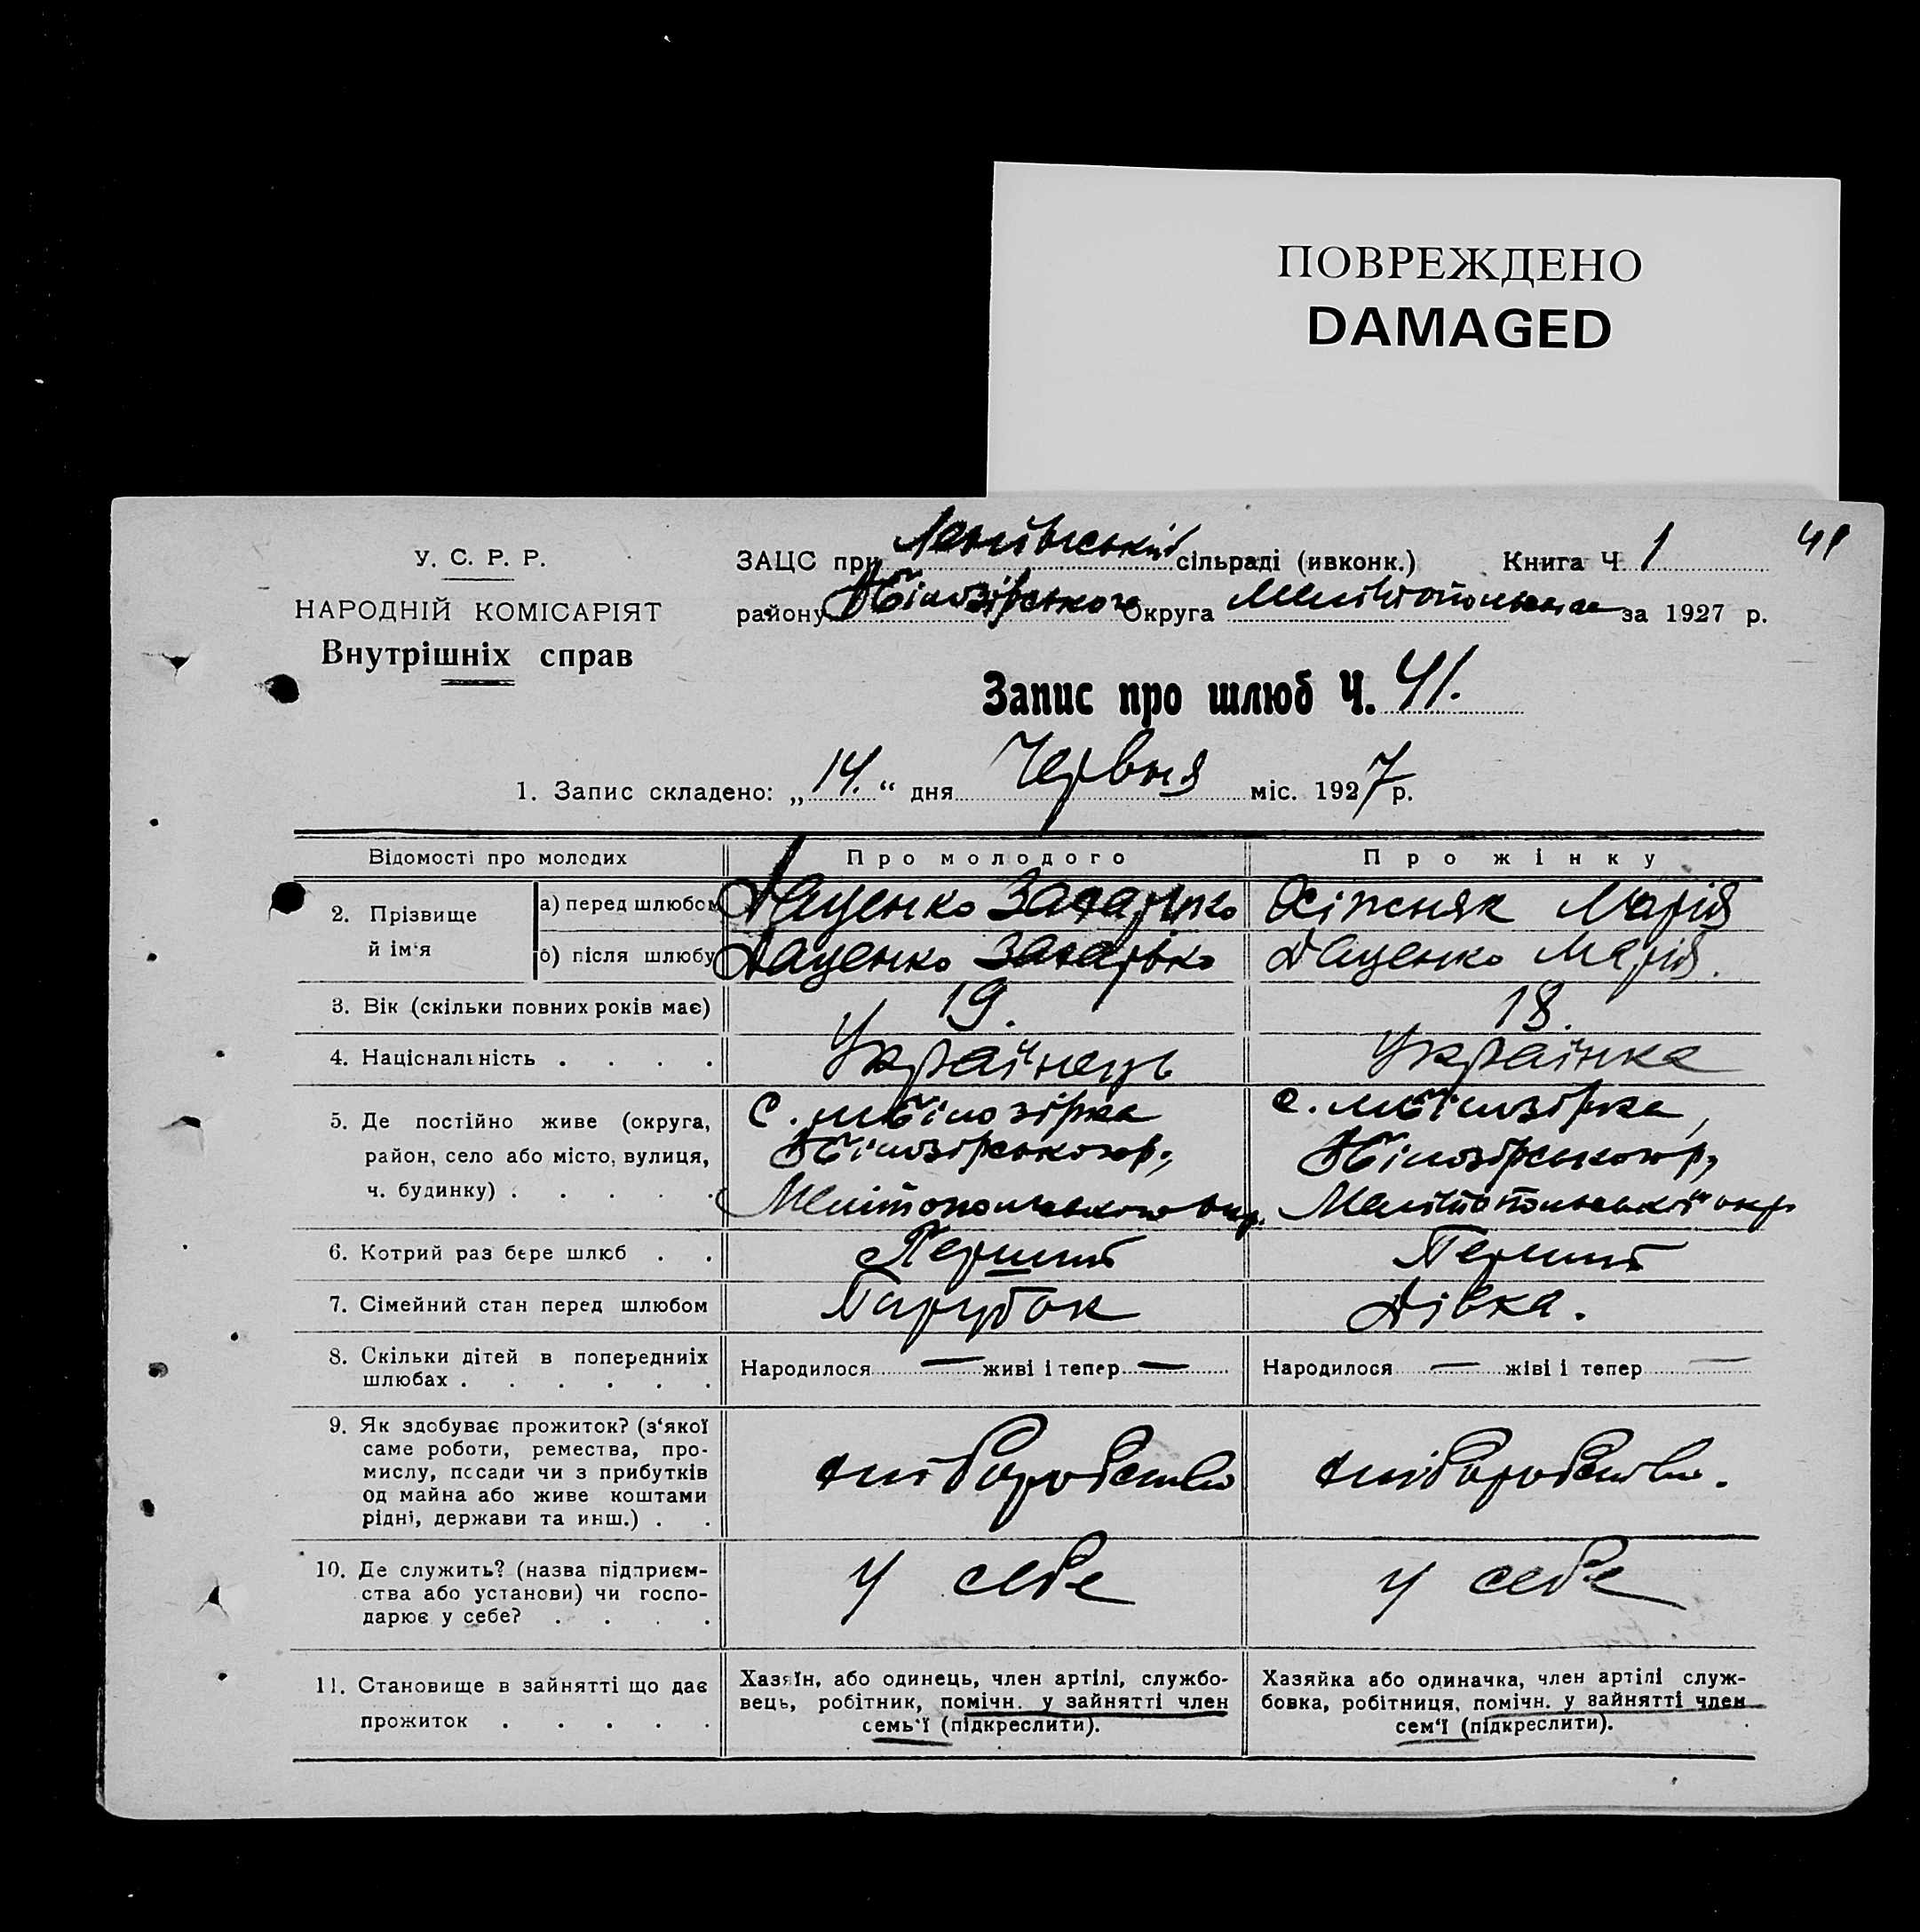 ПОВРЕЖДЕНО
DAMAGED
У. С. Р. Р.
НАРОДНІЙ КОМІСАРІЯТ
Внутрішніх справ
ЗАЦС при сільраді (ивконк.) Книга Ч. 1 41
району Білозірського Округа Мелітопольська за 1927 р.
Запис про шлюб Ч. 41.
1. Запис складено: „14.“ дня Червня міс. 1927 р.
Відомості про молодих
Про молодого
Про жінку
2. Прізвище й ім'я
а) перед шлюбом
Даценко Захарько
Марія
б) після шлюбу
Даценко Захарько
Даценко Марія.
3. Вік (скільки повних років має)
19.
18.
4. Національність . . . .
Українець
Українка
5. Де постійно живе (округа,
район, село або місто, вулиця,
ч. будинку) . . . . .
с. м Білозірка
Білозірського р.,
Мелітопольського окр.
с. м Білозірка,
Білозірського р,
Мелітопольської окр
6. Котрий раз бере шлюб . .
Перший
Перший
7. Сімейний стан перед шлюбом
Парубок
Дівка.
8. Скільки дітей в попередниіх
шлюбах . . . . . .
Народилося — живі і тепер —
Народилося — жіві і тепер —
9. Як здобуває прожиток? (з'якої
саме роботи, ремества, про-
мислу, посади чи з прибутків
од майна або живе коштами
рідні, держави та инш.) . .
хліборобство
хліборобство.
10. Де служить? (назва підприєм-
ства або установи) чи госпо-
дарює у себе? . . . .
у себе
у себе
11. Становище в зайнятті що дає
прожиток . . . . .
Хазяїн, або одинець, член артілі, службо-
вець, робітник, помічн. у зайнятті член
семь'ї (підкреслити).
Хазяйка або одиначка, член артілі служ-
бовка, робітниця, помічн. у зайнятті член
сем'ї (підкреслити).